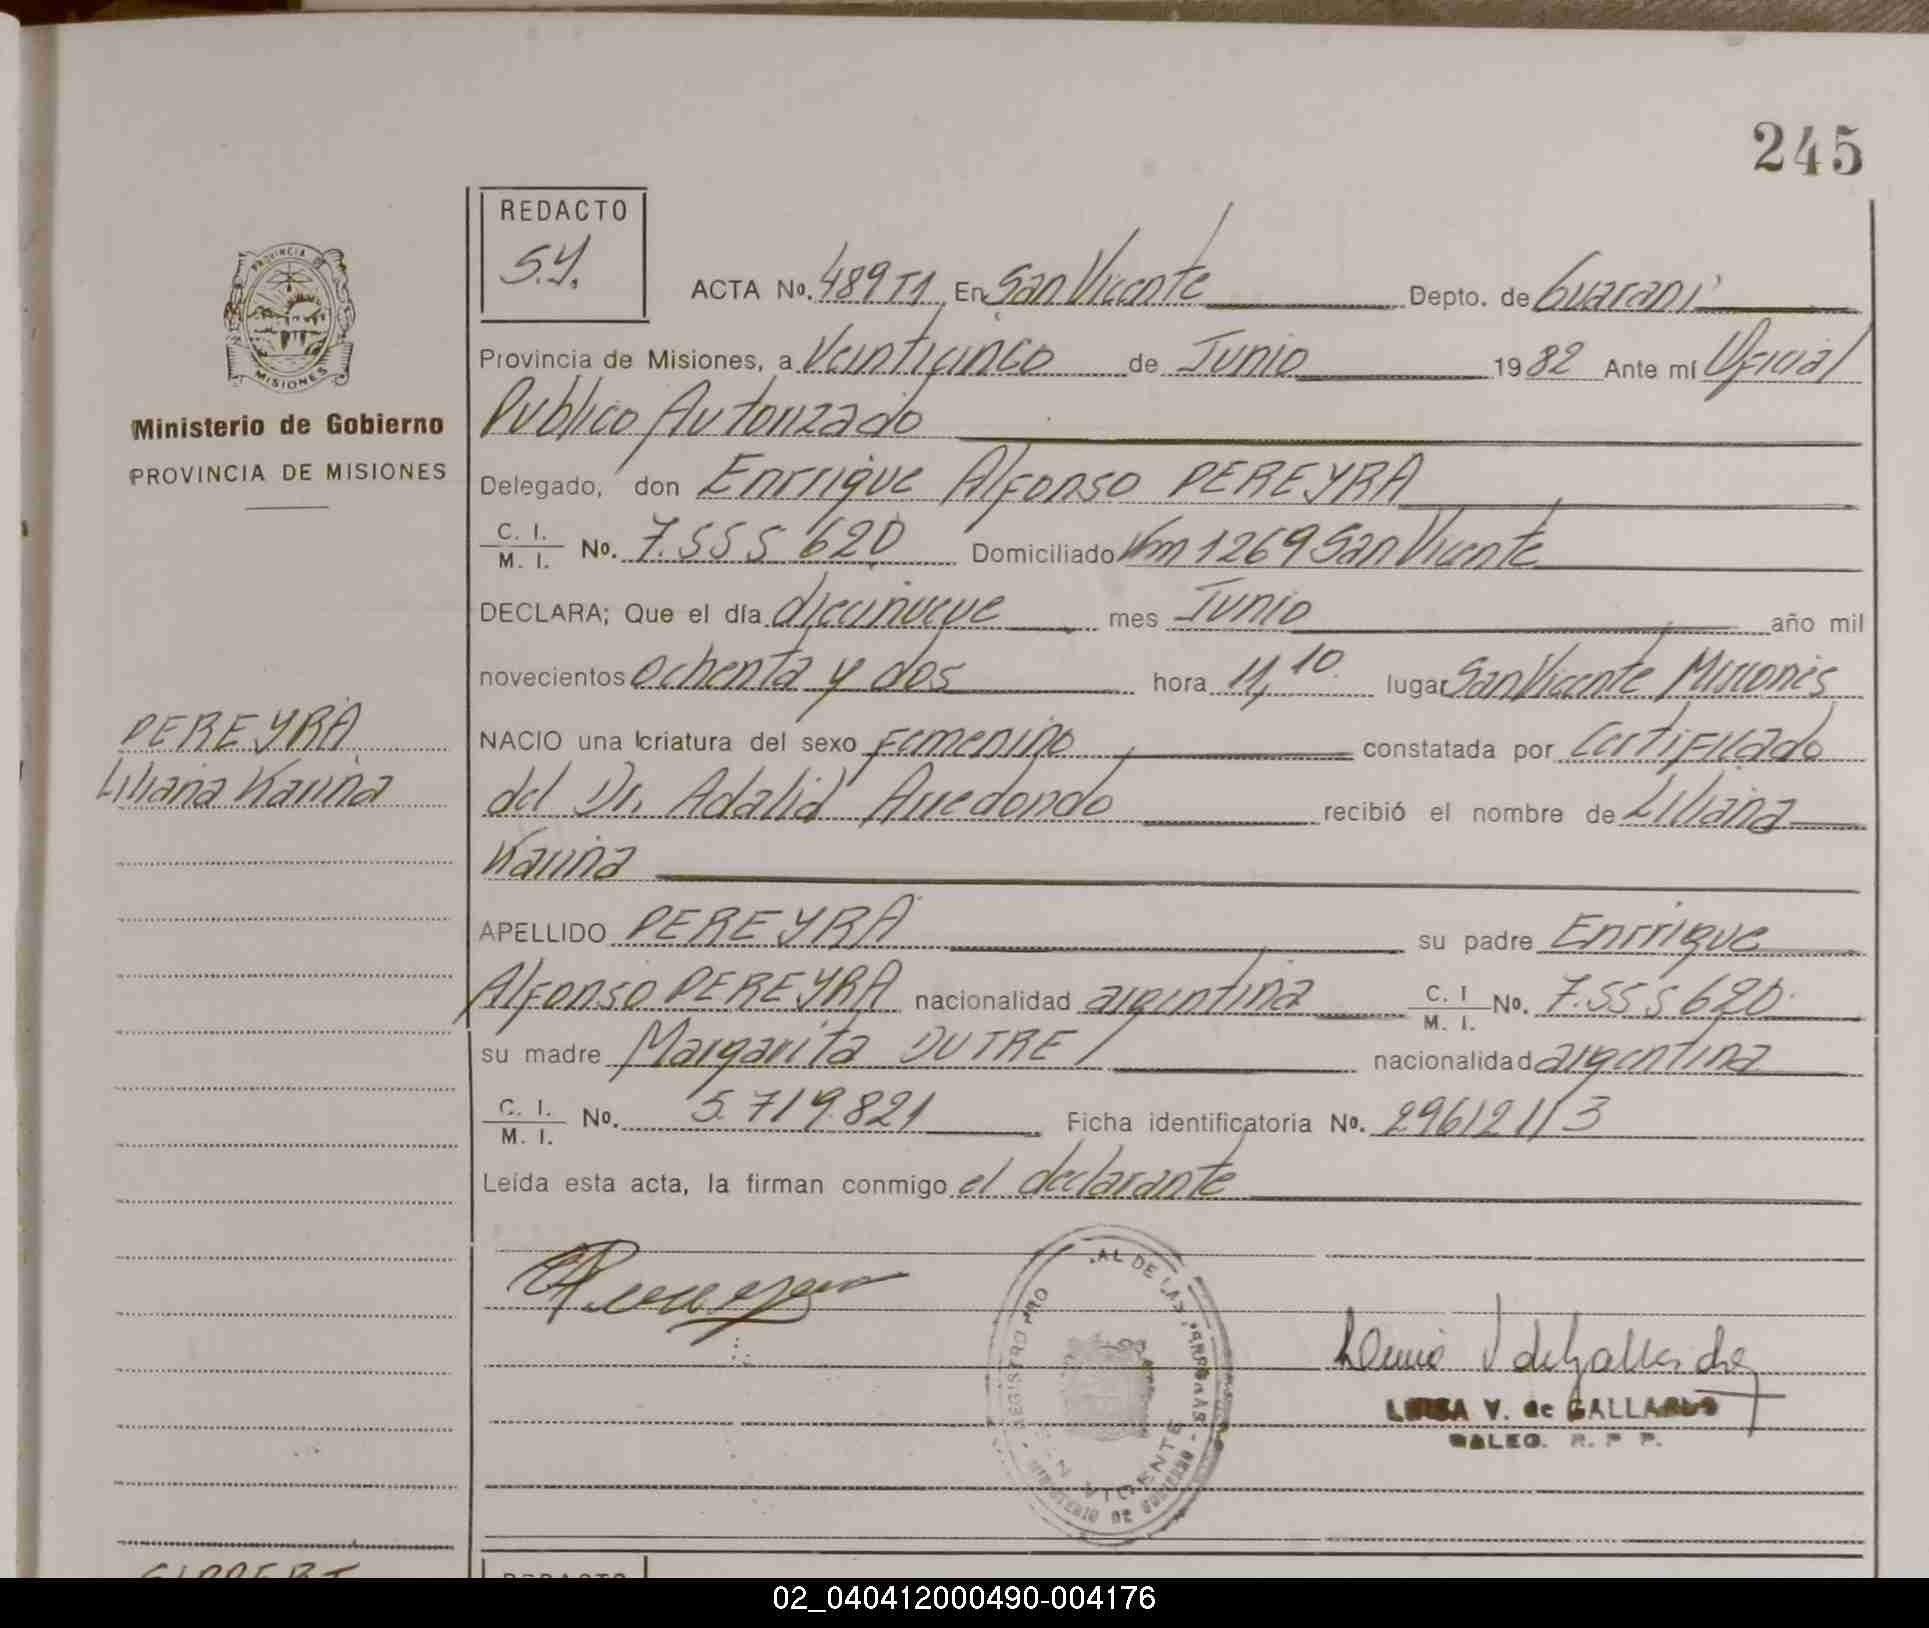 245
REDACTO
S.Y.
PROVINCIA DE
MISIONES
Ministerio de Gobierno
PROVINCIA DE MISIONES
ACTA No. 489 T1 En San Vicente Depto. de Guaraní
Provincia de Misiones, a Veinticinco de Junio 1982 Ante mí Oficial
Publico Autorizado
Delegado, don Enrrique Alfonso PEREYRA
C. I.
M. I. No. 7.555 620 Domiciliado Km 1269 San Vicente
DECLARA; Que el día diecinueve mes Junio año mil
novecientos ochenta y dos hora 11,10. lugar San Vicente Misiones
PEREYRA
Liliana Karina
NACIO una criatura del sexo femenino constatada por Certificado
del Dr. Adalid Arredondo recibió el nombre de Liliana
Karina
APELLIDO PEREYRA su padre Enrrique
Alfonso PEREYRA nacionalidad argentina C. I M. I. No. 7.555 620.
su madre Margarita DUTRE nacionalidad argentina
C. I.
M. I. No. 5.719.821 Ficha identificatoria No. 296121/3
Leída esta acta, la firman conmigo el declarante
REGISTRO PRO AL DE LAS PERSONAS - MINISTERIO DE GOBIERNO
VICENTE
LUISA V. de GALLARDO
R. P P.
REDACTO
02_040412000490-004176